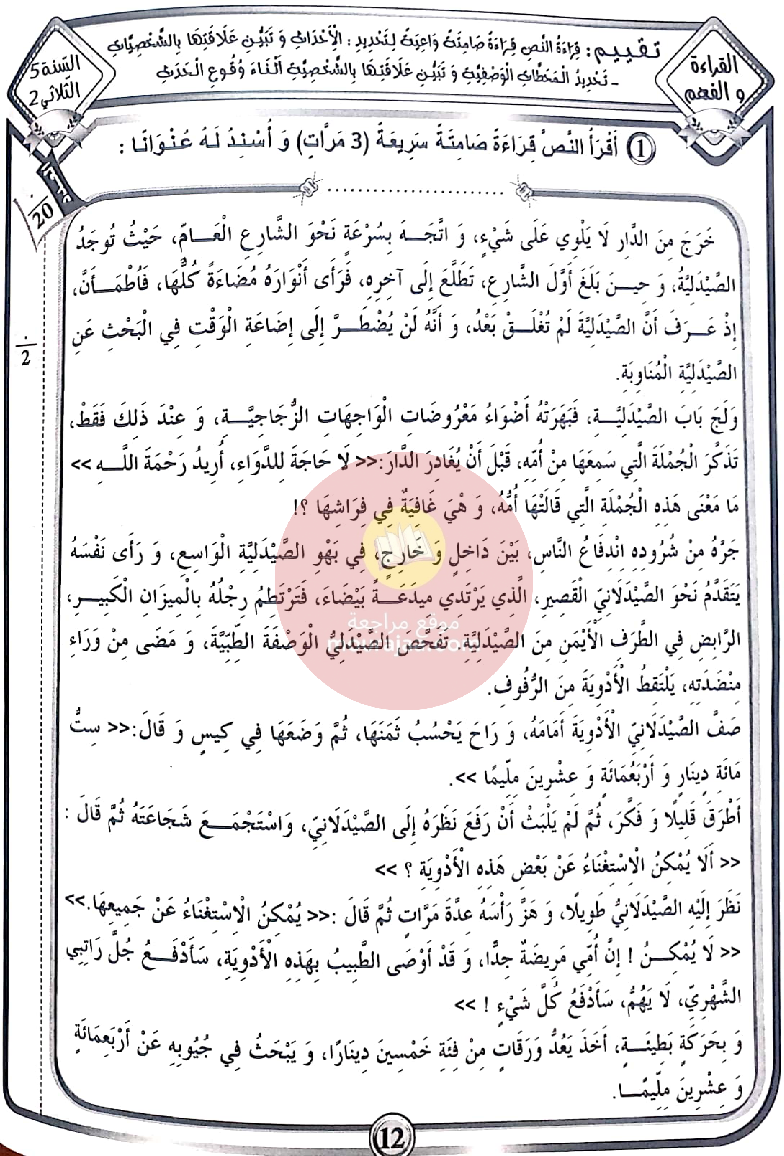 القراءة
و الفهم
تقييم: قِرَاءَةُ النَّصِ قِرَاءَةً صَامِتَةً وَاعِيَةً لِتَحْدِيدِ : الْأَحْدَاثِ وَ تَبَيُّنِ عَلَاقَتِهَا بِالشَّخْصِيَّاتِ
- تَحْدِيدُ الْمَحَطَّاتِ الْوَصْفِيَّةِ وَ تَبَيُّنِ عَلَاقَتِهَا بِالشَّخْصِيَّاتِ أَثْنَاءَ وُقُوعِ الْحَدَثِ
السّنة 5
الثّلاثي 2
1 أَقْرَأُ النَّصَّ قِرَاءَةً صَامِتَةً سَرِيعَةً (3 مَرَّاتٍ) وَ أُسْنِدُ لَهُ عُنْوَانًا :
20
2
خَرَجَ مِنَ الدَّارِ لَا يَلْوِي عَلَى شَيْءٍ، وَ اتَّجَـهَ بِسُرْعَةٍ نَحْوَ الشَّارِعِ الْعَـامِّ، حَيْثُ تُوجَدُ
الصَّيْدَلِيَّةُ، وَ حِيـنَ بَلَغَ أَوَّلَ الشَّارِعِ، تَطَلَّعَ إِلَى آخِرِهِ، فَرَأَى أَنْوَارَهُ مُضَاءَةً كُلَّهَا، فَاُطْمَـأَنَّ،
إِذْ عَـرَفَ أَنَّ الصَّيْدَلِيَّةَ لَمْ تُغْلَـقْ بَعْدُ، وَ أَنَّهُ لَنْ يُضْطَـرَّ إِلَى إِضَاعَةِ الْوَقْتِ فِي الْبَحْثِ عَنِ
الصَّيْدَلِيَّةِ الْمُنَاوِبَةِ.
وَلَجَ بَابَ الصَّيْدَلِيَّـةِ، فَبَهَرَتْهُ أَضْوَاءُ مَعْرُوضَاتِ الْوَاجِهَاتِ الزُّجَاجِيَّـةِ، وَ عِنْدَ ذَلِكَ فَقَطْ،
تَذَكَّرَ الْجُمْلَةَ الَّتِي سَمِعَهَا مِنْ أُمِّهِ، قَبْلَ أَنْ يُغَادِرَ الدَّارَ:<< لَا حَاجَةَ لِلدَّوَاءِ، أُرِيدُ رَحْمَةَ اللَّـهِ >>
مَا مَعْنَى هَذِهِ الْجُمْلَةِ الَّتِي قَالَتْهَا أُمُّهُ، وَ هْيَ غَافِيَةٌ فِي فِرَاشِهَا ؟!
جَرَّهُ مِنْ شُرُودِهِ اِنْدِفَاعُ النَّاسِ، بَيْنَ دَاخِلٍ وَ خَارِجٍ، فِي بَهْوِ الصَّيْدَلِيَّةِ الْوَاسِعِ، وَ رَأَى نَفْسَهُ
يَتَقَدَّمُ نَحْوَ الصَّيْدَلَانِيِّ الْقَصِيرِ، الَّذِي يَرْتَدِي مِيدَعَـةً بَيْضَاءَ، فَتَرْتَطِمُ رِجْلُهُ بِالْمِيزَانِ الْكَبِيرِ،
الرَّابِضِ فِي الطَّرَفِ الْأَيْمَنِ مِنَ الصَّيْدَلِيَّةِ تَفَحَّصَ الصَّيْدَلِيُّ الْوَصْفَةَ الطِّبِّيَّةَ، وَ مَضَى مِنْ وَرَاءِ
مِنْضَدَتِهِ، يَلْتَقِطُ الْأَدْوِيَةَ مِنَ الرُّفُوفِ.
صَفَّ الصَّيْدَلَانِيُّ الْأَدْوِيَةَ أَمَامَهُ، وَ رَاحَ يَحْسُبُ ثَمَنَهَا، ثُمَّ وَضَعَهَا فِي كِيسٍ وَ قَالَ:<< سِتُّ
مَائَةِ دِينَارٍ وَ أَرْبَعُمَائَةٍ وَ عِشْرِينَ مِلِّيمًا >>.
أَطْرَقَ قَلِيلًا وَ فَكَّرَ، ثُمَّ لَمْ يَلْبَثْ أَنْ رَفَعَ نَظَرَهُ إِلَى الصَّيْدَلَانِيِّ، وَاسْتَجْمَـعَ شَجَاعَتَهُ ثُمَّ قَالَ :
<< أَلَا يُمْكِنُ الْاِسْتِغْنَاءُ عَنْ بَعْضِ هَذِهِ الْأَدْوِيَةِ ؟ >>
نَظَرَ إِلَيْهِ الصَّيْدَلَانِيُّ طَوِيلًا، وَ هَزَّ رَأْسَهُ عِدَّةَ مَرَّاتٍ ثُمَّ قَالَ :<< يُمْكِنُ الْاِسْتِغْنَاءُ عَنْ جَمِيعِهَا.>>
<< لَا يُمْكِـنُ ! إِنَّ أُمِّي مَرِيضَةٌ جِدًّا، وَ قَدْ أَوْصَى الطَّبِيبُ بِهَذِهِ الْأَدْوِيَةِ، سَأَدْفَـعُ جُلَّ رَاتِبِي
الشَّهْرِيِّ، لَا يَهُمُّ، سَأَدْفَعُ كُلَّ شَيْءٍ ! >>
وَ بِحَرَكَةٍ بَطِيئَـةٍ، أَخَذَ يَعُدُّ وَرَقَاتٍ مِنْ فِئَةِ خَمْسِينَ دِينَارًا، وَ يَبْحَثُ فِي جُيُوبِهِ عَنْ أَرْبَعِمَائَةٍ
وَ عِشْرِينَ مِلِّيمًـا.
موقع مراجعة
12